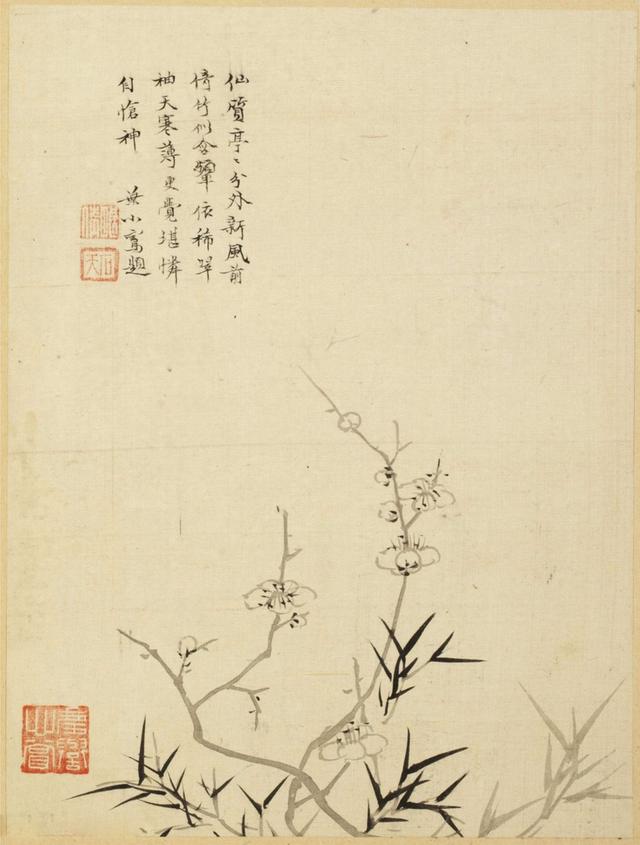 仙質亭〻分外新風前
倚竹似含顰依稀翠
袖天寒薄更覺堪憐
自愴神　葉小鸞題